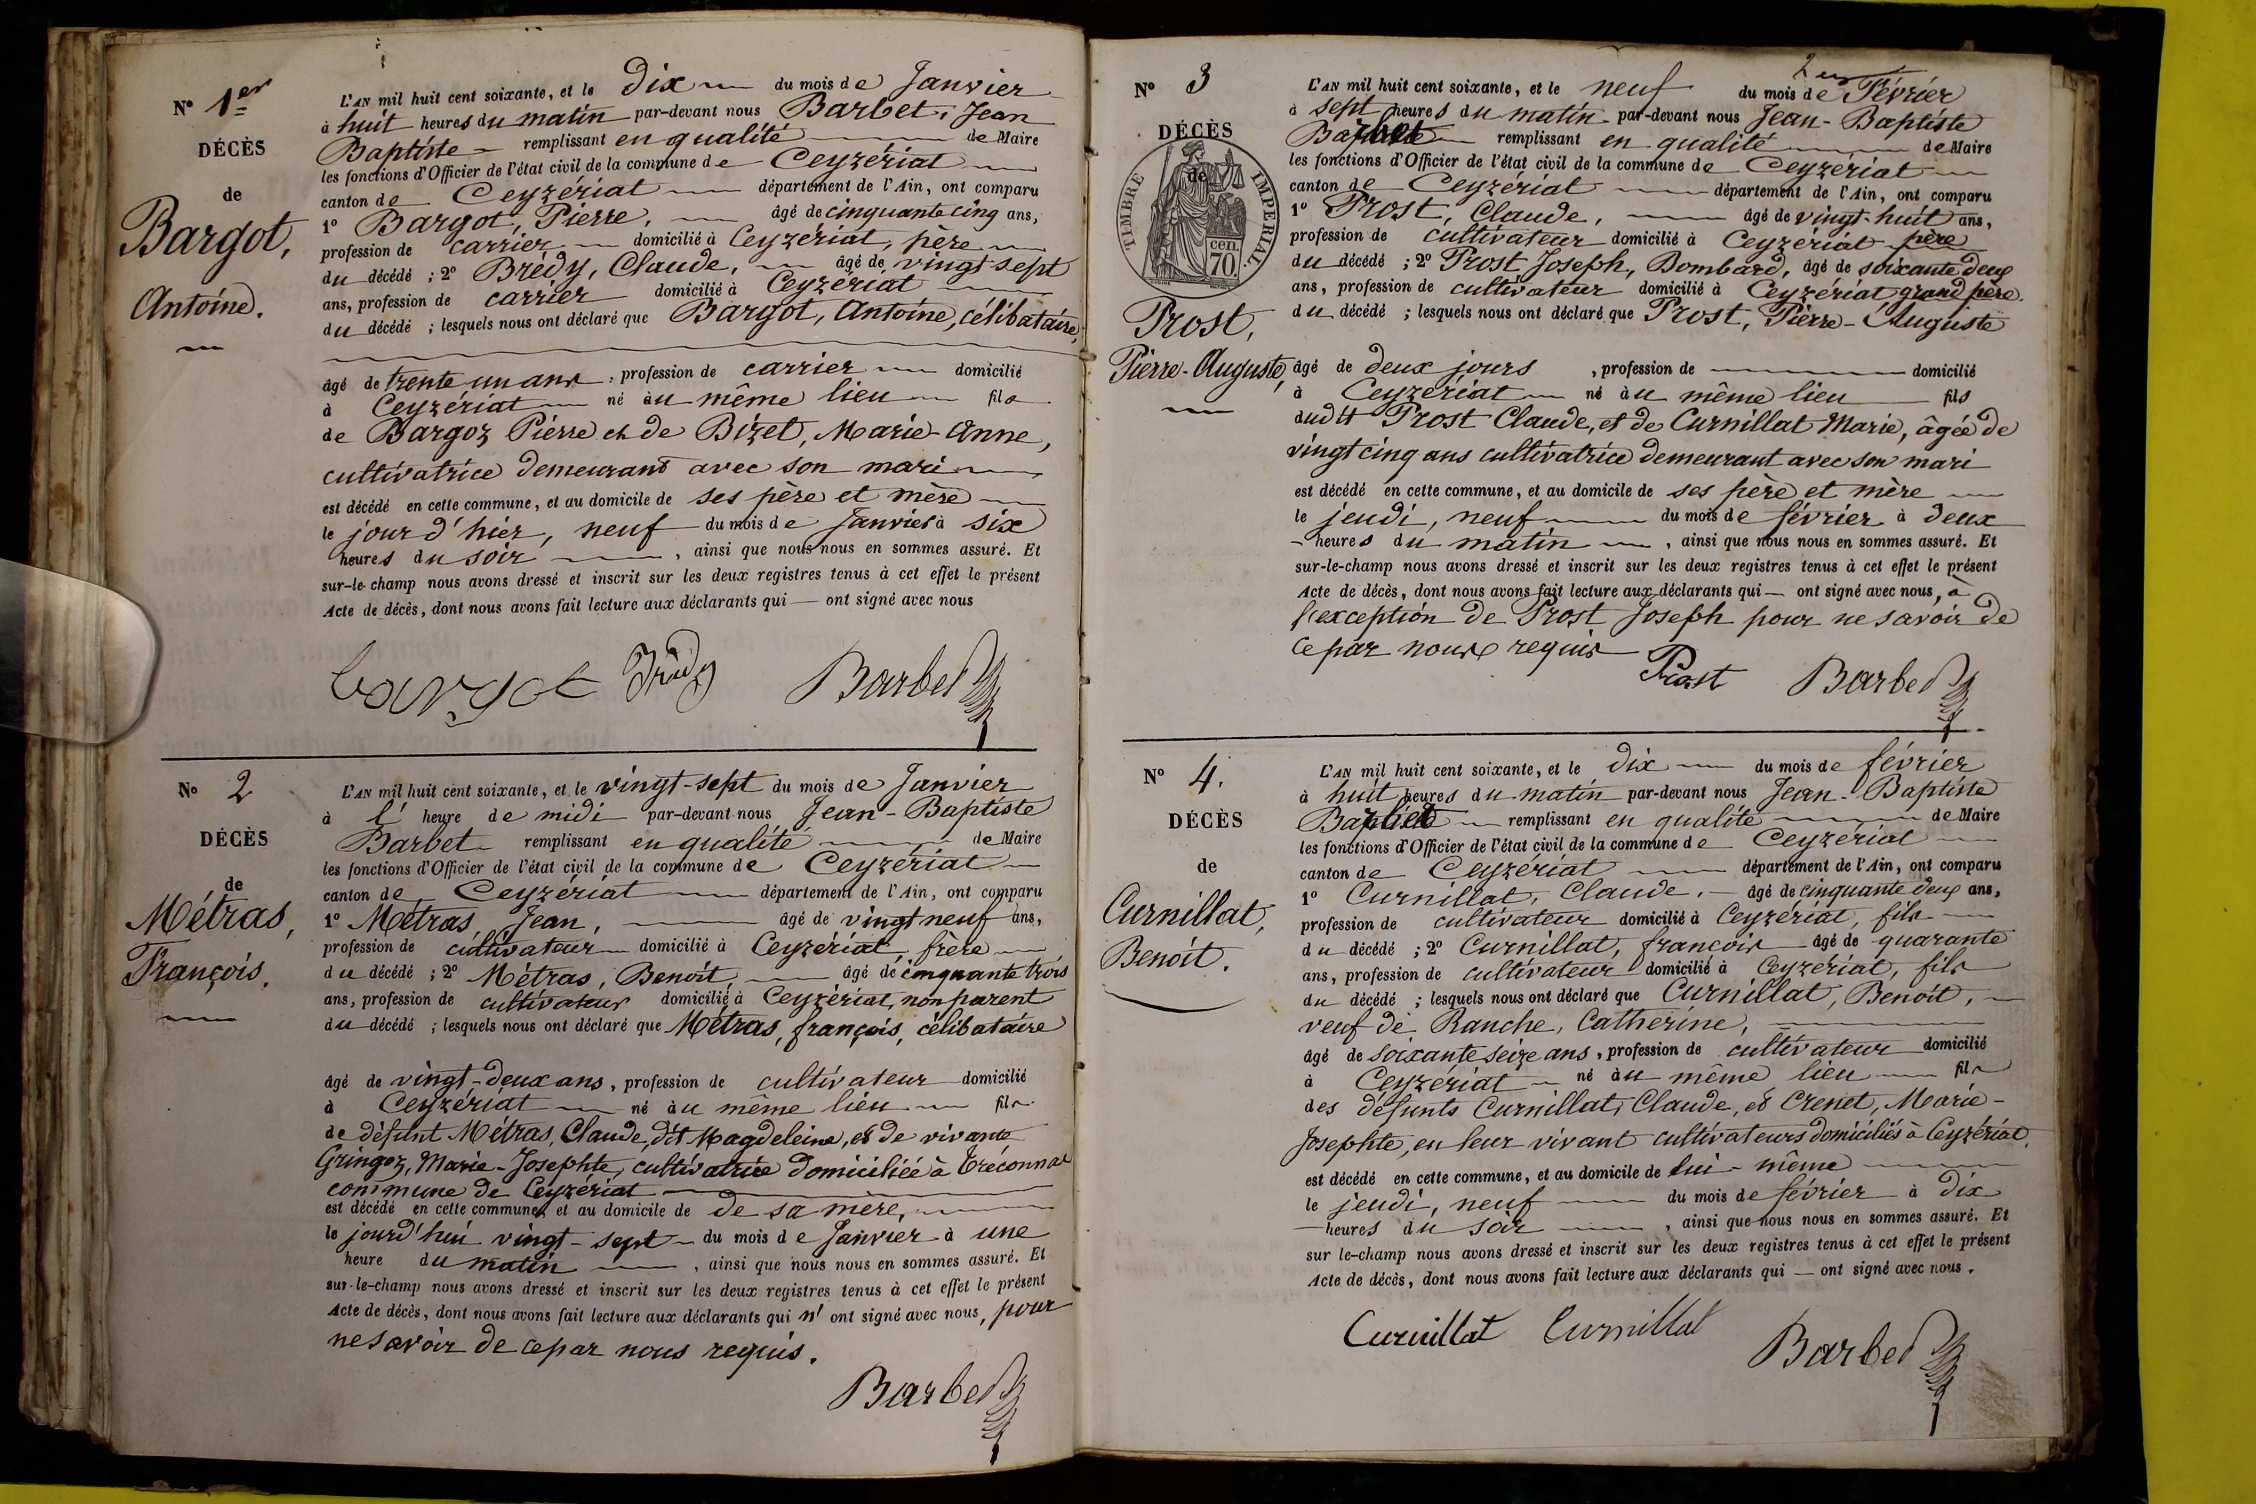 N° 1er
DÉCÈS
de
Bargot,
Antoine.
L'AN mil huit cent soixante, et le Dix du mois de Janvier
à huit heures du matin par-devant nous Barbet, Jean
Baptiste remplissant en qualité de Maire
les fonctions d'Officier de l'état civil de la commune de Ceyzériat
canton de Ceyzériat département de l'Ain, ont comparu
1° Bargot, Pierre, âgé de cinquante cinq ans,
profession de carrier domicilié à Ceyzériat, père
du décédé ; 2° Brédy, Claude, âgé de vingt-sept
ans, profession de carrier domicilié à Ceyzériat
du décédé ; lesquels nous ont déclaré que Bargot, Antoine, célibataire,
âgé de trente un ans, profession de carrier domicilié
à Ceyzériat né au même lieu fils
de Bargoz Pierre et de Bizet, Marie-Anne,
cultivatrice demeurant avec son mari
est décédé en cette commune, et au domicile de ses père et mère
le jour d'hier, neuf du mois de Janvier à six
heures du soir, ainsi que nous nous en sommes assuré. Et
sur-le-champ nous avons dressé et inscrit sur les deux registres tenus à cet effet le présent
Acte de décès, dont nous avons fait lecture aux déclarants qui — ont signé avec nous
bargot Brédy Barbet
N° 2
DÉCÈS
de
Métras,
François.
L'AN mil huit cent soixante, et le vingt-sept du mois de Janvier
à l' heure de midi par-devant nous Jean-Baptiste
Barbet remplissant en qualité de Maire
les fonctions d'Officier de l'état civil de la commune de Ceyzériat
canton de Ceyzériat département de l'Ain, ont comparu
1° Métras, Jean, âgé de vingt neuf ans,
profession de cultivateur domicilié à Ceyzériat, frère
du décédé ; 2° Métras, Benoît, âgé de cinquante trois
ans, profession de cultivateur domicilié à Ceyzériat, non parent
du décédé ; lesquels nous ont déclaré que Métras, françois, célibataire
âgé de vingt-deux ans, profession de cultivateur domicilié
à Ceyzériat né au même lieu fils
de défunt Métras, Claude, dit Magdeleine, et de vivante
Gringoz, Marie-Josephte, cultivatrice domiciliée à Tréconnas
commune de Ceyzériat
est décédé en cette commune, et au domicile de de sa mère,
le jourd'hui vingt-sept du mois de Janvier à une
heure du matin, ainsi que nous nous en sommes assuré. Et
sur-le-champ nous avons dressé et inscrit sur les deux registres tenus à cet effet le présent
Acte de décès, dont nous avons fait lecture aux déclarants qui n' ont signé avec nous, pour
ne savoir de ce par nous requis.
Barbet
N° 3
DÉCÈS
de
TIMBRE IMPERIAL
70 cen.
Prost,
Pierre-Auguste,
L'AN mil huit cent soixante, et le neuf du mois de Février
à sept heures du matin par-devant nous Jean-Baptiste
Barbet remplissant en qualité de Maire
les fonctions d'Officier de l'état civil de la commune de Ceyzériat
canton de Ceyzériat département de l'Ain, ont comparu
1° Prost, Claude, âgé de vingt-huit ans,
profession de cultivateur domicilié à Ceyzériat père
du décédé ; 2° Prost Joseph, Bombard, âgé de soixante deux
ans, profession de cultivateur domicilié à Ceyzériat grand père.
du décédé ; lesquels nous ont déclaré que Prost, Pierre-Auguste
âgé de deux jours, profession de domicilié
à Ceyzériat né au même lieu fils
dudit Prost Claude, et de Curnillat Marie, âgée de
vingt cinq ans cultivatrice demeurant avec son mari
est décédé en cette commune, et au domicile de ses père et mère
le jeudi, neuf du mois de février à deux
heures du matin, ainsi que nous nous en sommes assuré. Et
sur-le-champ nous avons dressé et inscrit sur les deux registres tenus à cet effet le présent
Acte de décès, dont nous avons fait lecture aux déclarants qui — ont signé avec nous, à
l'exception de Prost Joseph pour ne savoir de
ce par nous requis
Prost Barbet
N° 4.
DÉCÈS
de
Curnillat,
Benoit.
L'AN mil huit cent soixante, et le dix du mois de février
à huit heures du matin par-devant nous Jean-Baptiste
Barbet remplissant en qualité de Maire
les fonctions d'Officier de l'état civil de la commune de Ceyzériat
canton de Ceyzériat département de l'Ain, ont comparu
1° Curnillat, Claude, âgé de cinquante deux ans,
profession de cultivateur domicilié à Ceyzériat, fils
du décédé ; 2° Curnillat, françois âgé de quarante
ans, profession de cultivateur domicilié à Ceyzériat, fils
du décédé ; lesquels nous ont déclaré que Curnillat, Benoit,
veuf de Ranche, Catherine,
âgé de soixante seize ans, profession de cultivateur domicilié
à Ceyzériat né au même lieu fils
des défunts Curnillat, Claude, et Crenet, Marie-
Josephte, en leur vivant cultivateurs domiciliés à Ceyzériat.
est décédé en cette commune, et au domicile de lui-même
le jeudi, neuf du mois de février à dix
heures du soir, ainsi que nous nous en sommes assuré. Et
sur le-champ nous avons dressé et inscrit sur les deux registres tenus à cet effet le présent
Acte de décès, dont nous avons fait lecture aux déclarants qui — ont signé avec nous.
Curnillat Curnillat Barbet